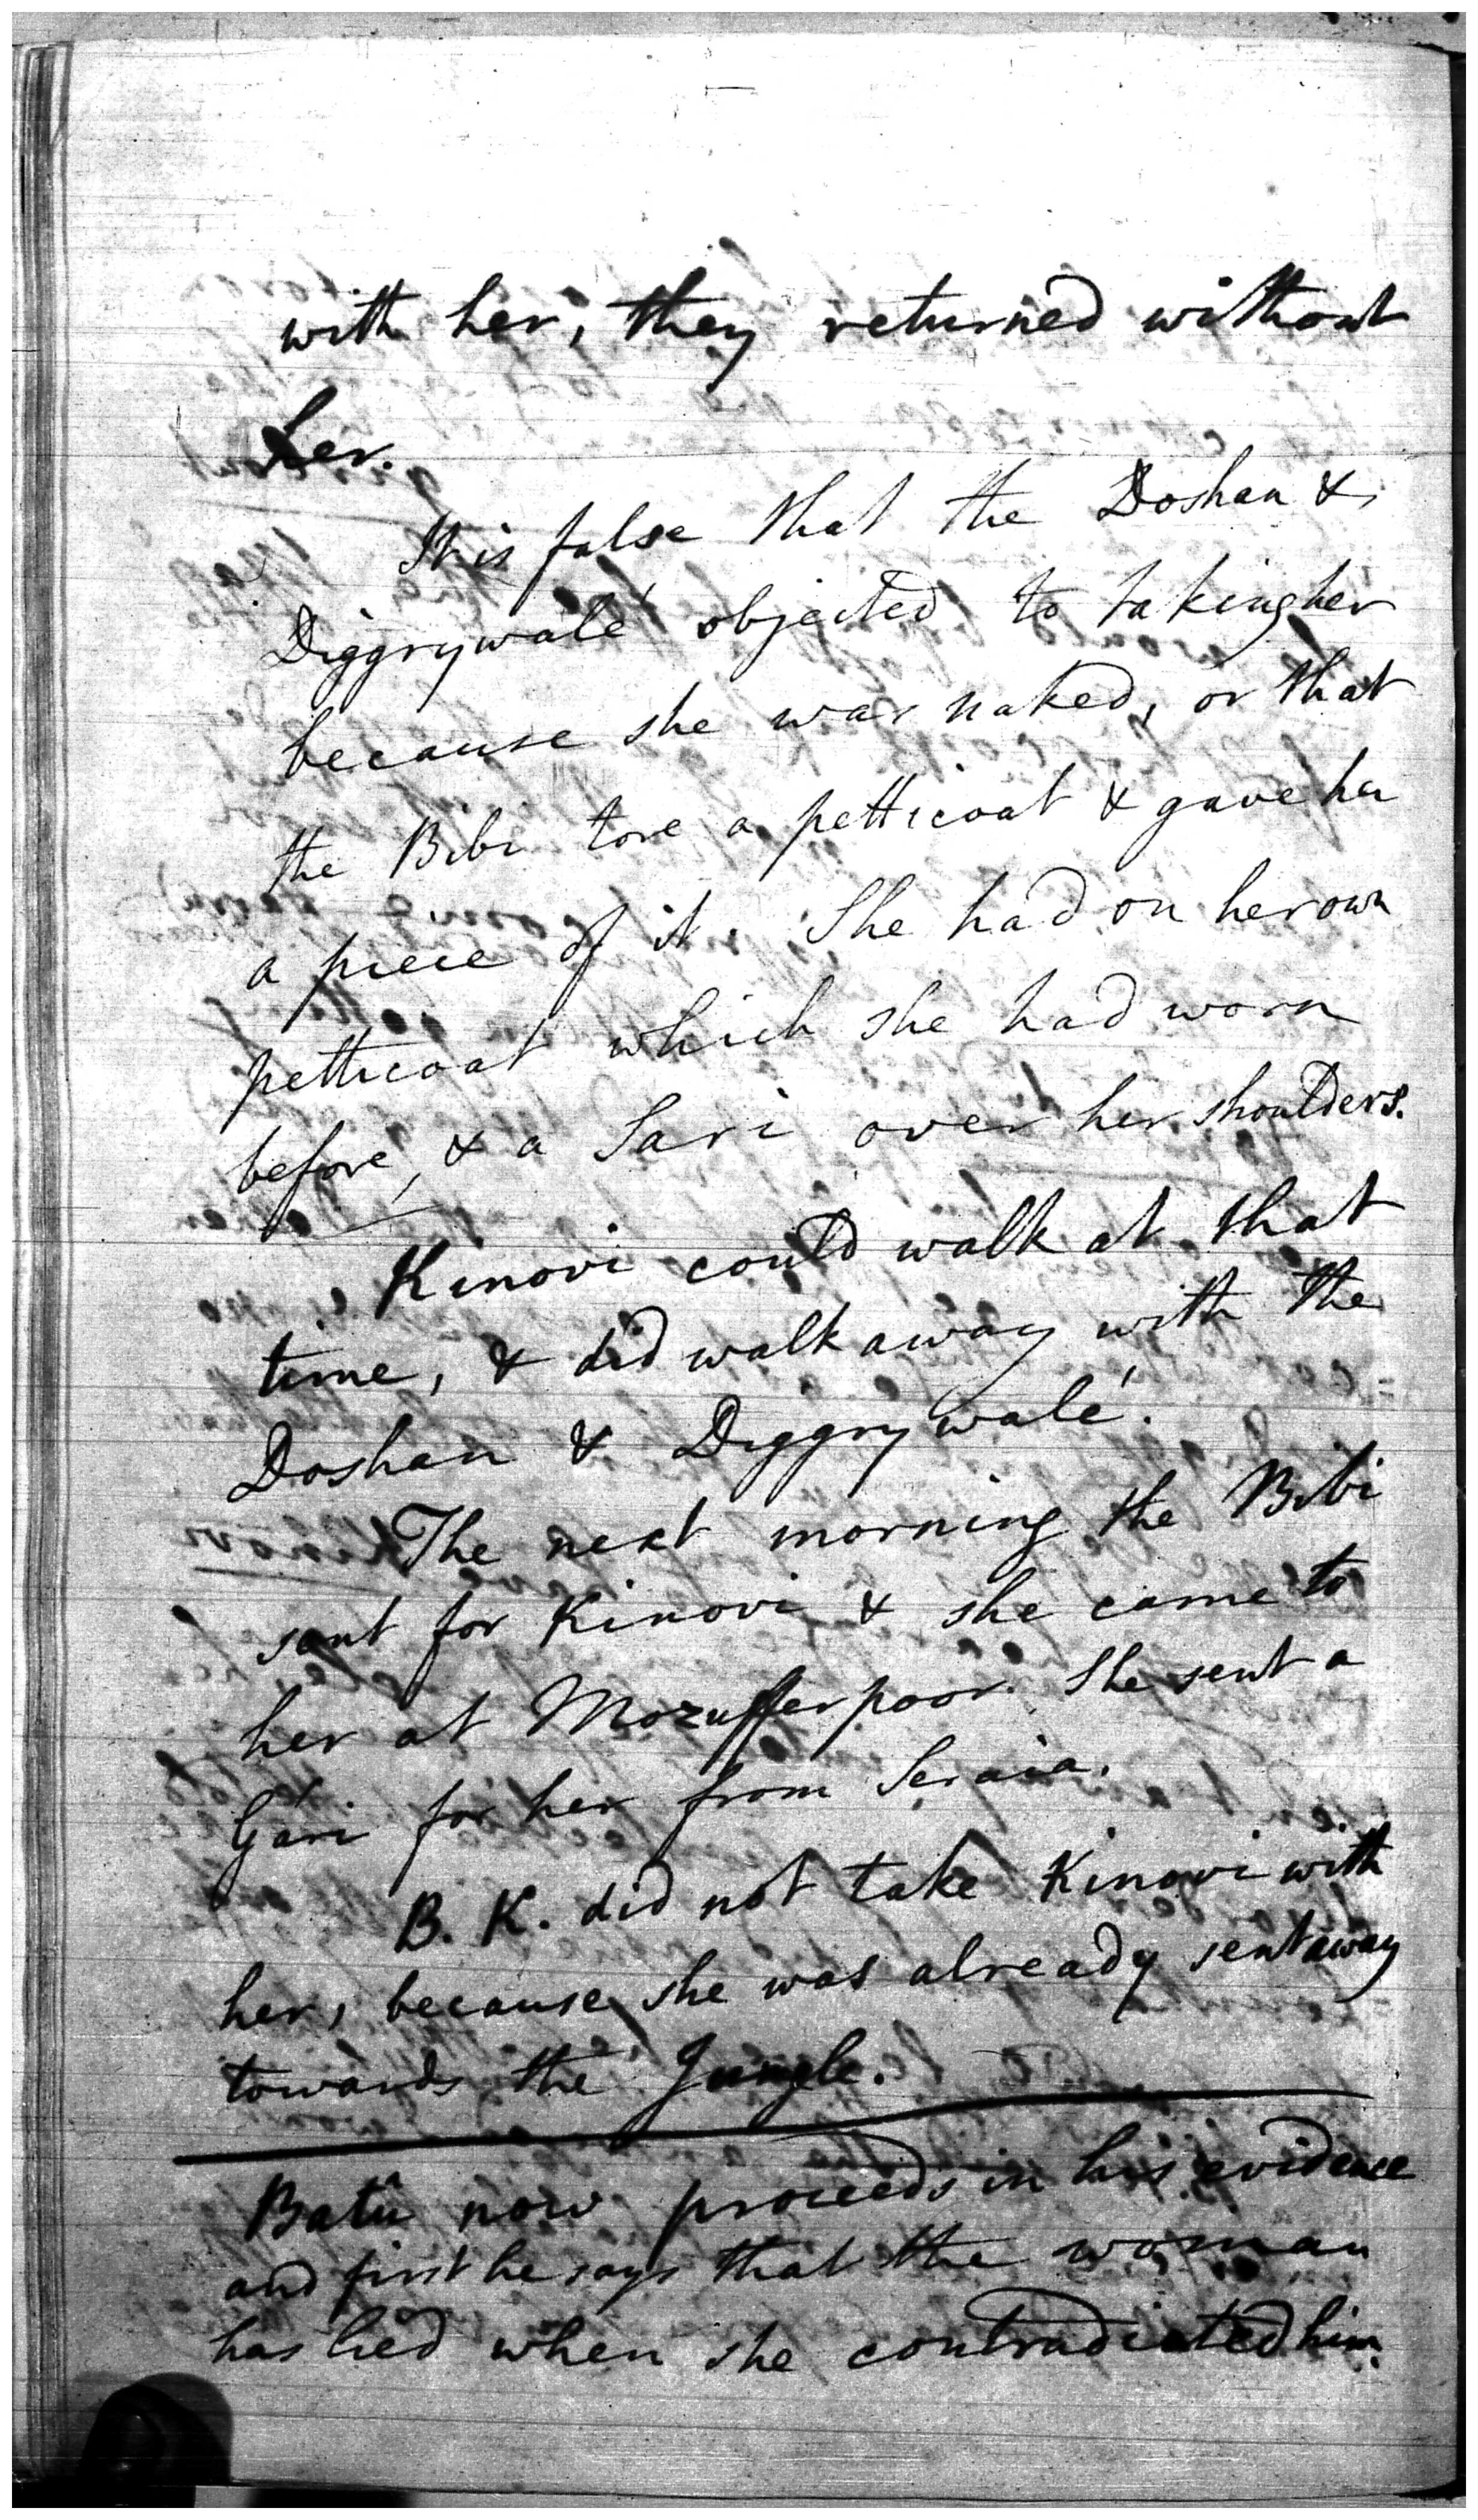 with her, they returned without
her.
It is false that the Doshan &
Diggrywalé objected to taking her
because she was naked, or that
the Bibi tore a petticoat & gave her
a piece of it. She had on her own
petticoat which she had worn
before, & a Sari over her shoulders.
Kinovi could walk at that
time, & did walk away with the
Doshan & Diggrywalé.
The next morning the Bibi
sent for Kinovi & she came to
her at Mozufferpoor. She sent a
Gári for her from Seraia.
B. K. did not take Kinovi with
her, because she was already sent away
towards the Jungle.
Batû now proceeds in his evidence
and first he says that the woman
has lied when she contradicted him.